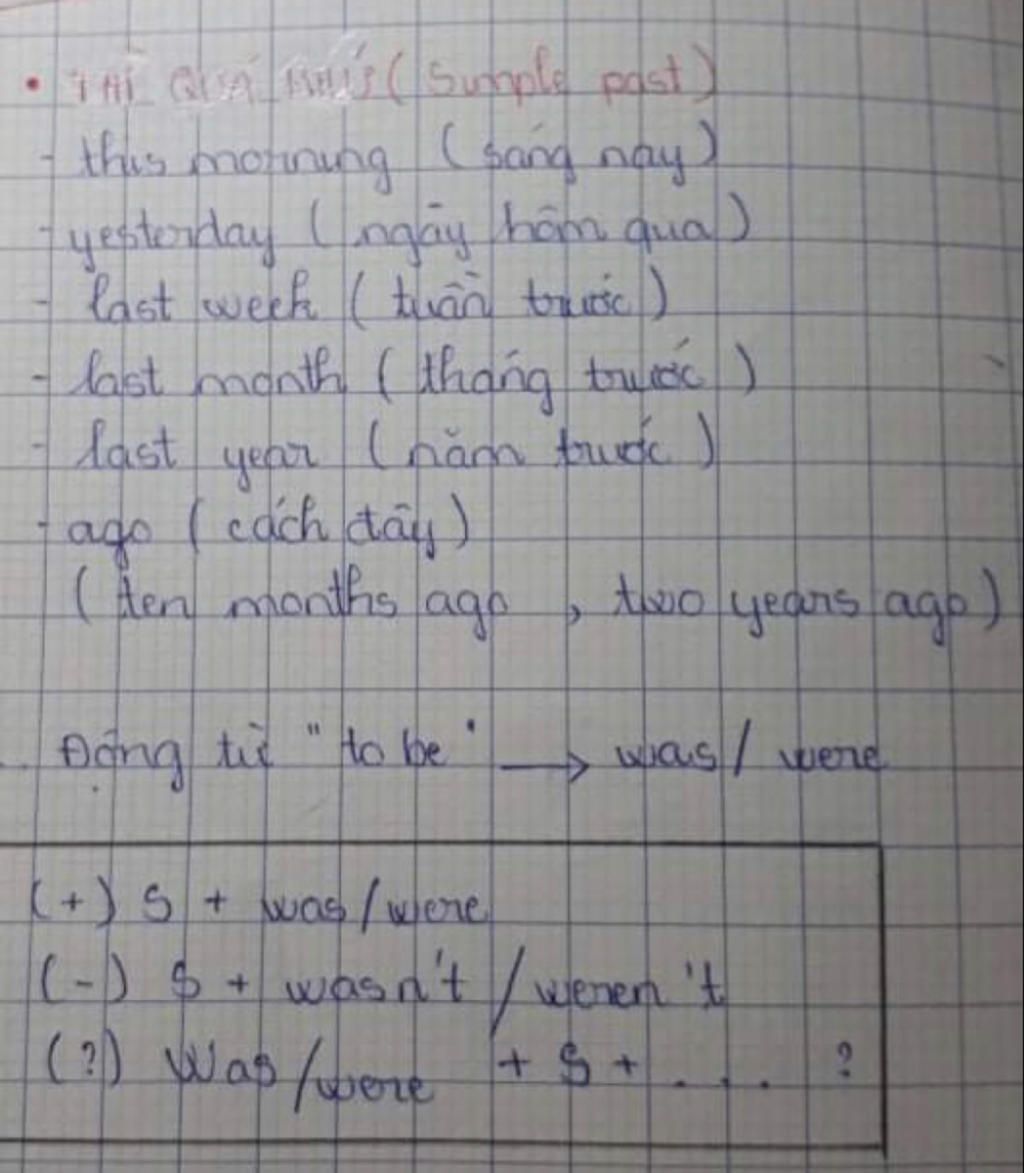 • THÌ QUÁ KHỨ (Simple past)
- this morning (sáng nay)
- yesterday (ngày hôm qua)
- last week (tuần trước)
- last month (tháng trước)
- last year (năm trước)
- ago (cách đây)
(ten months ago, two years ago)
Động từ "to be" → was / were
(+) S + was/were
(-) S + wasn't / weren't
(?) Was/were + S + . . . ?